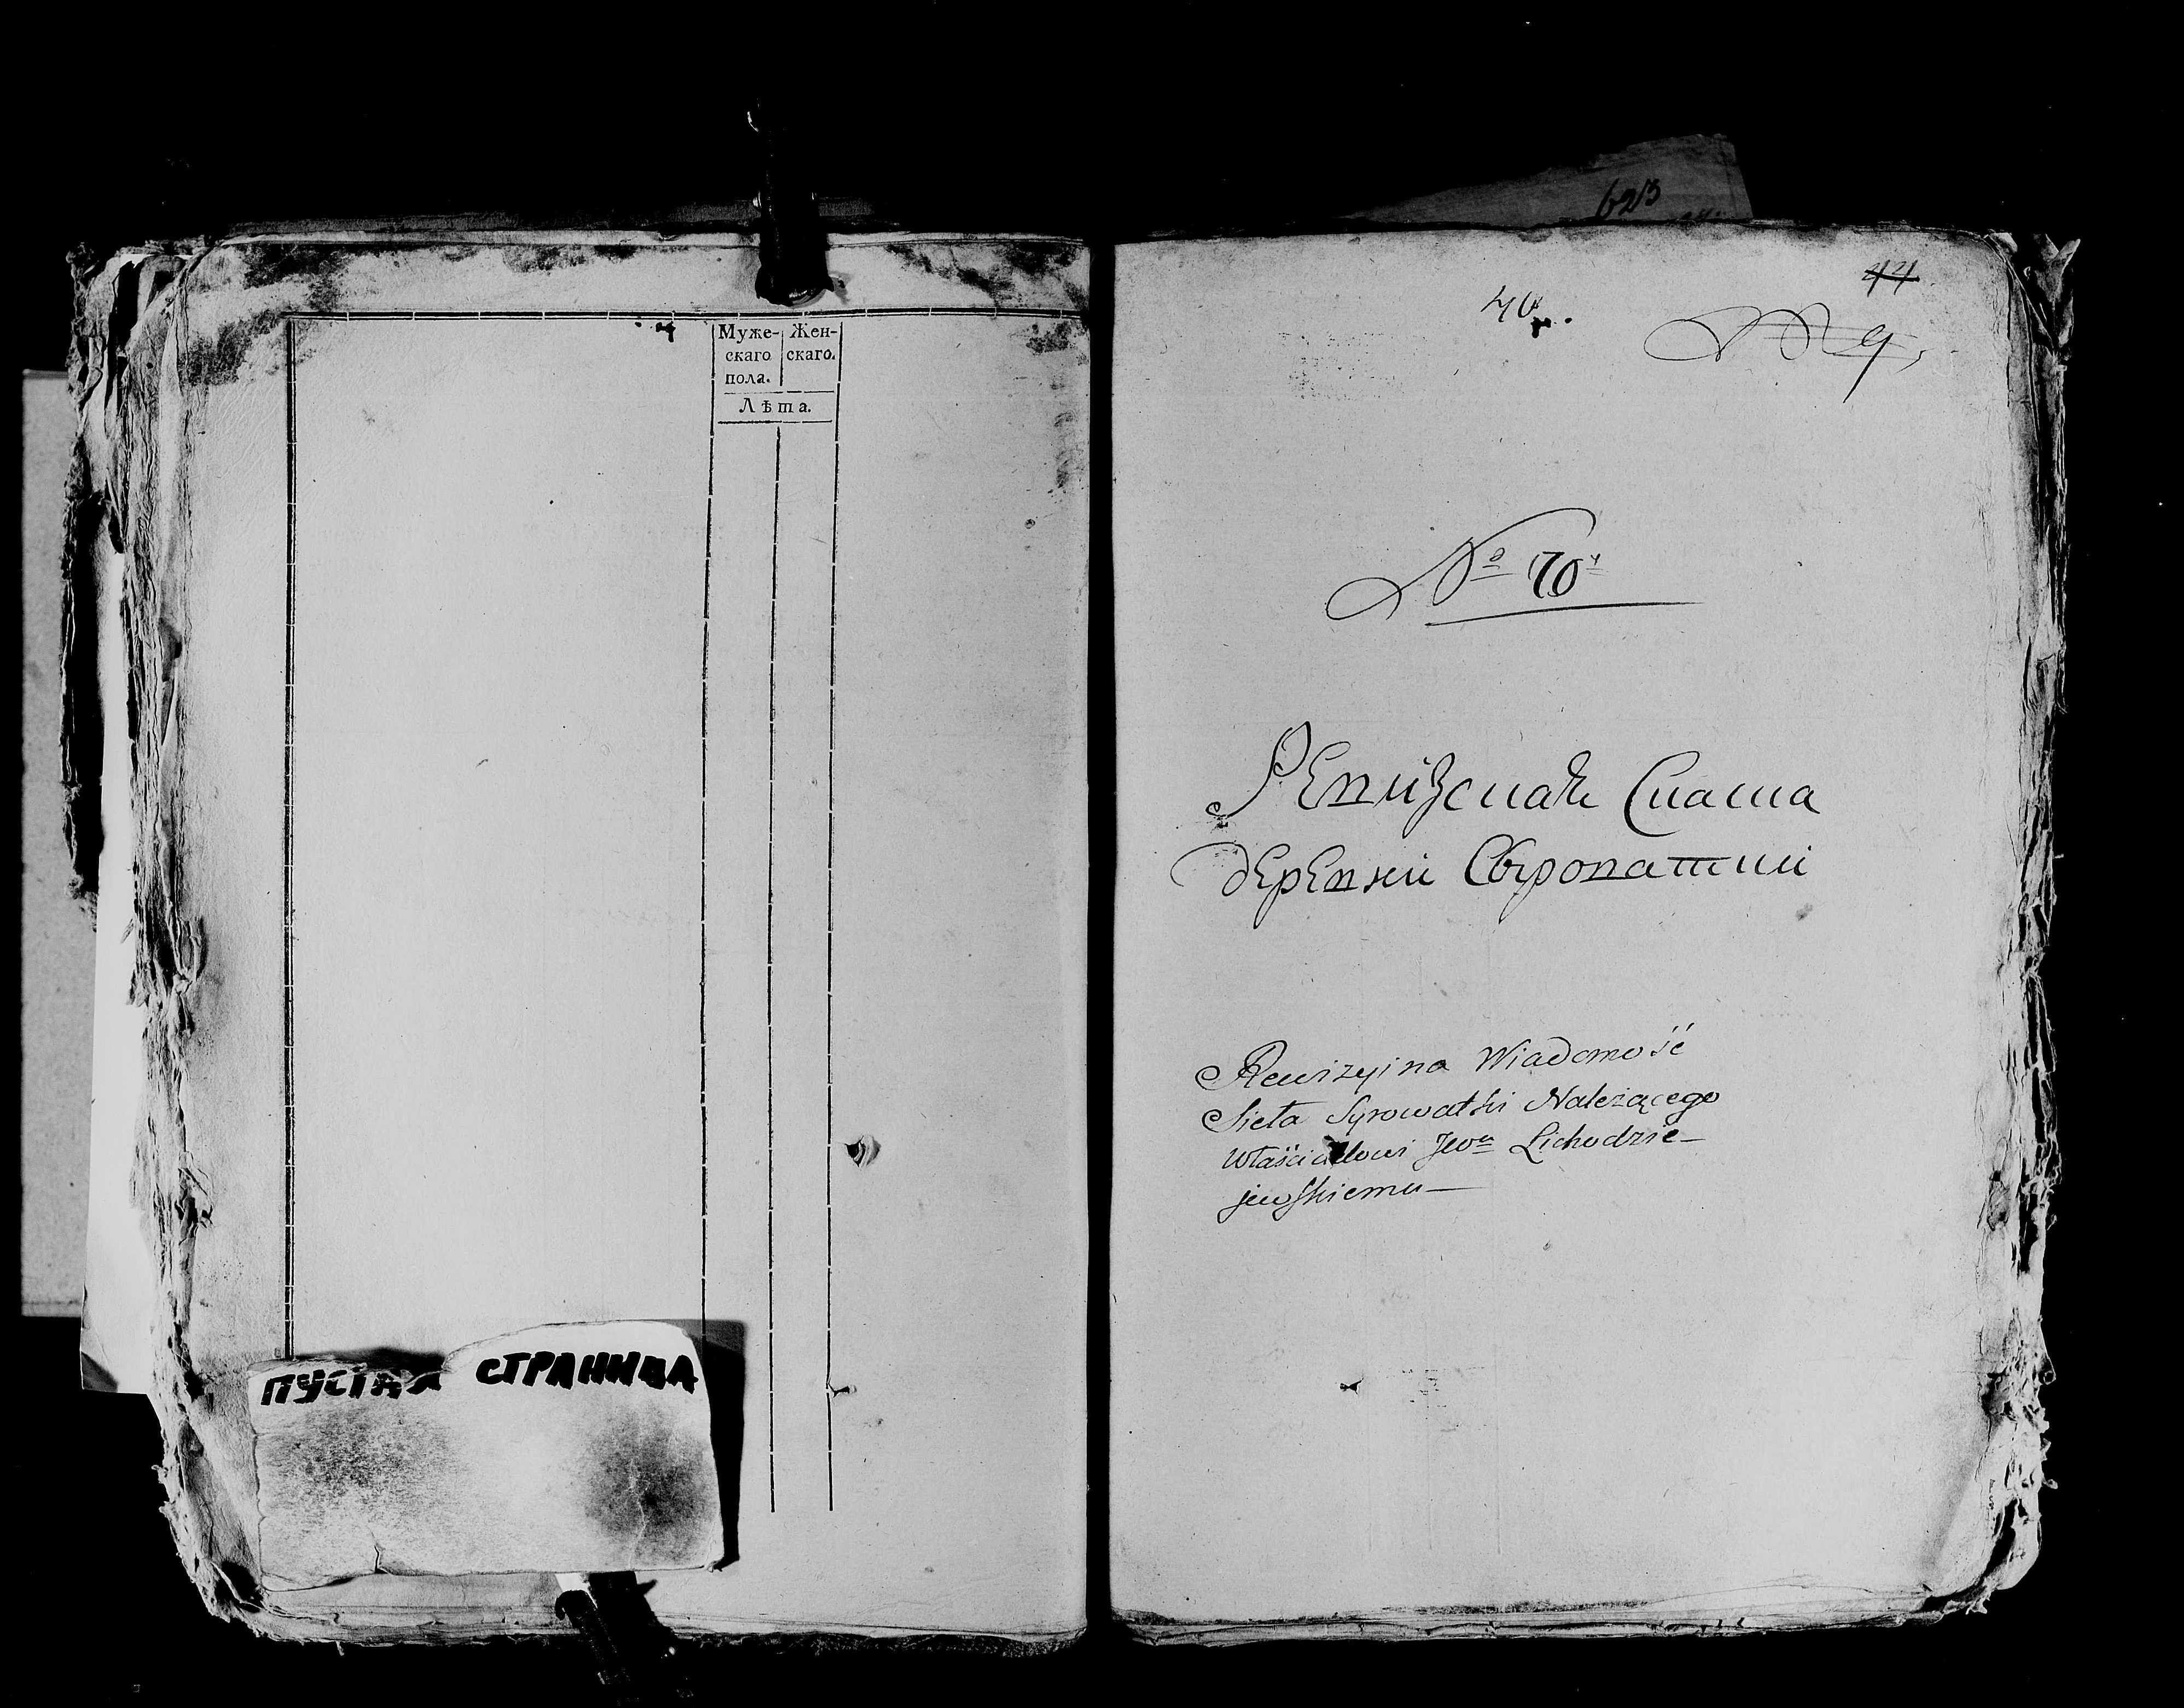 Муже- Жен-
скаго скаго.
пола.
Лѣта.
ПУСТАЯ СТРАНИЦА
623
44
40
№ 70
Ревизская Скаска
деревни Сыроватки
Rewizyina Wiadomość
Sieła Syrowatki Należącego
Właścicielowi JWu Lichodzie-
jewskiemu